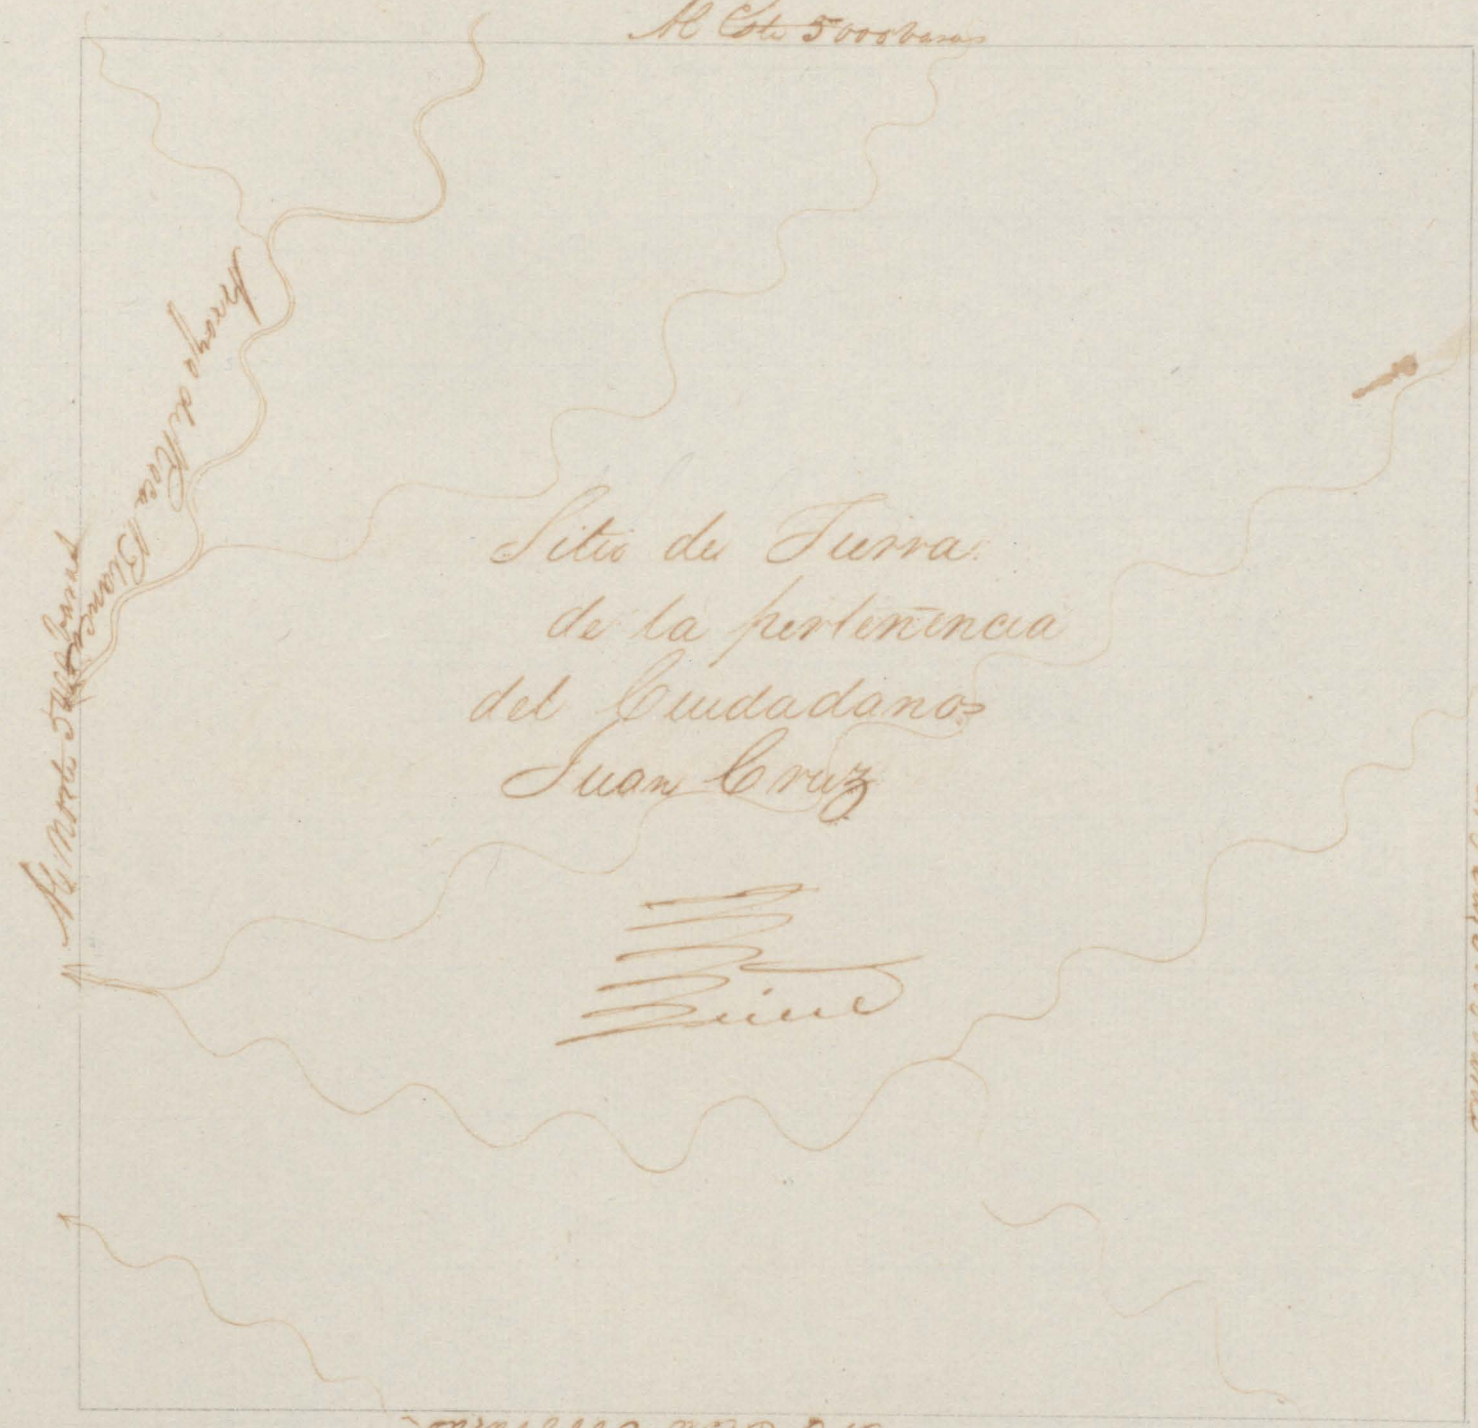 Al Este 5000 baras
Arroyo de Roca Blanca
Al Norte 5000 baras
Sitio de Tierra
de la pertenencia
del Ciudadano
Juan Cruz